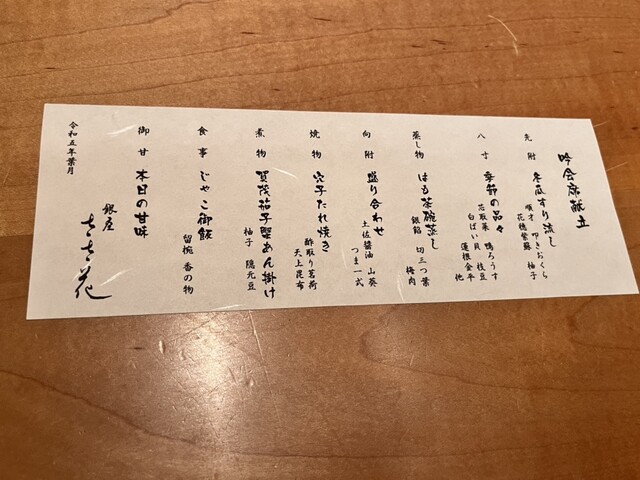 吟会席献立
先附 冬瓜すり流し
順才 叩きおくら
花穂紫蘇 柚子
八寸 季節の品々
花取菜 鴨ろうす
白ばい貝 枝豆
蓮根金平 他
蒸し物 はも茶碗蒸し
銀餡 切三つ葉
梅肉
向附 盛り合わせ
土佐醤油 山葵
つま一式
焼物 穴子たれ焼き
酢取り茗荷
天上昆布
煮物 賀茂茄子堅あん掛け
柚子 隠元豆
食事 じゃこ御飯
留椀 香の物
御甘 本日の甘味
銀座
ささ花
令和五年葉月